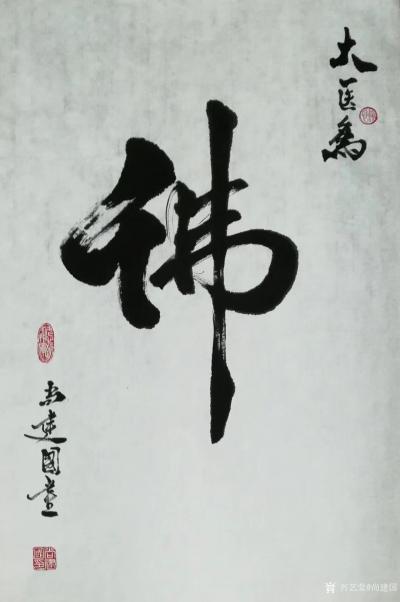 大医为
佛
尚建国书
齐艺堂@尚建国